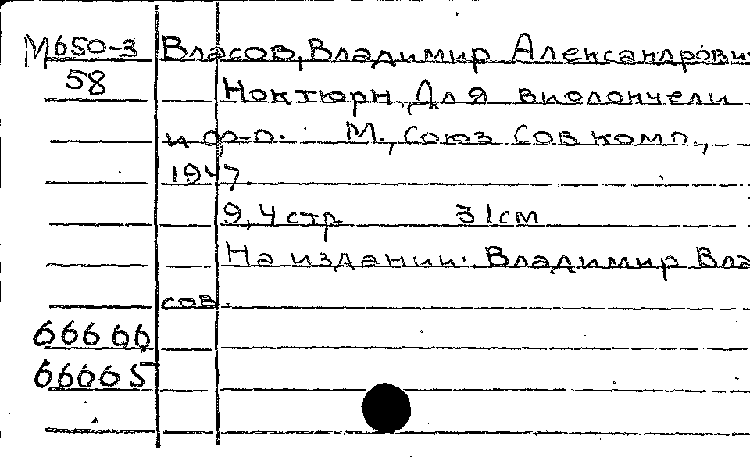 М650-3 Власов, Владимир Александрови
58 Ноктюрн. Для виолончели
и ф-п. М., Союз сов комп.,
1947
9, 4 стр 31см
На издании: Владимир Вла
сов.
66666
66665